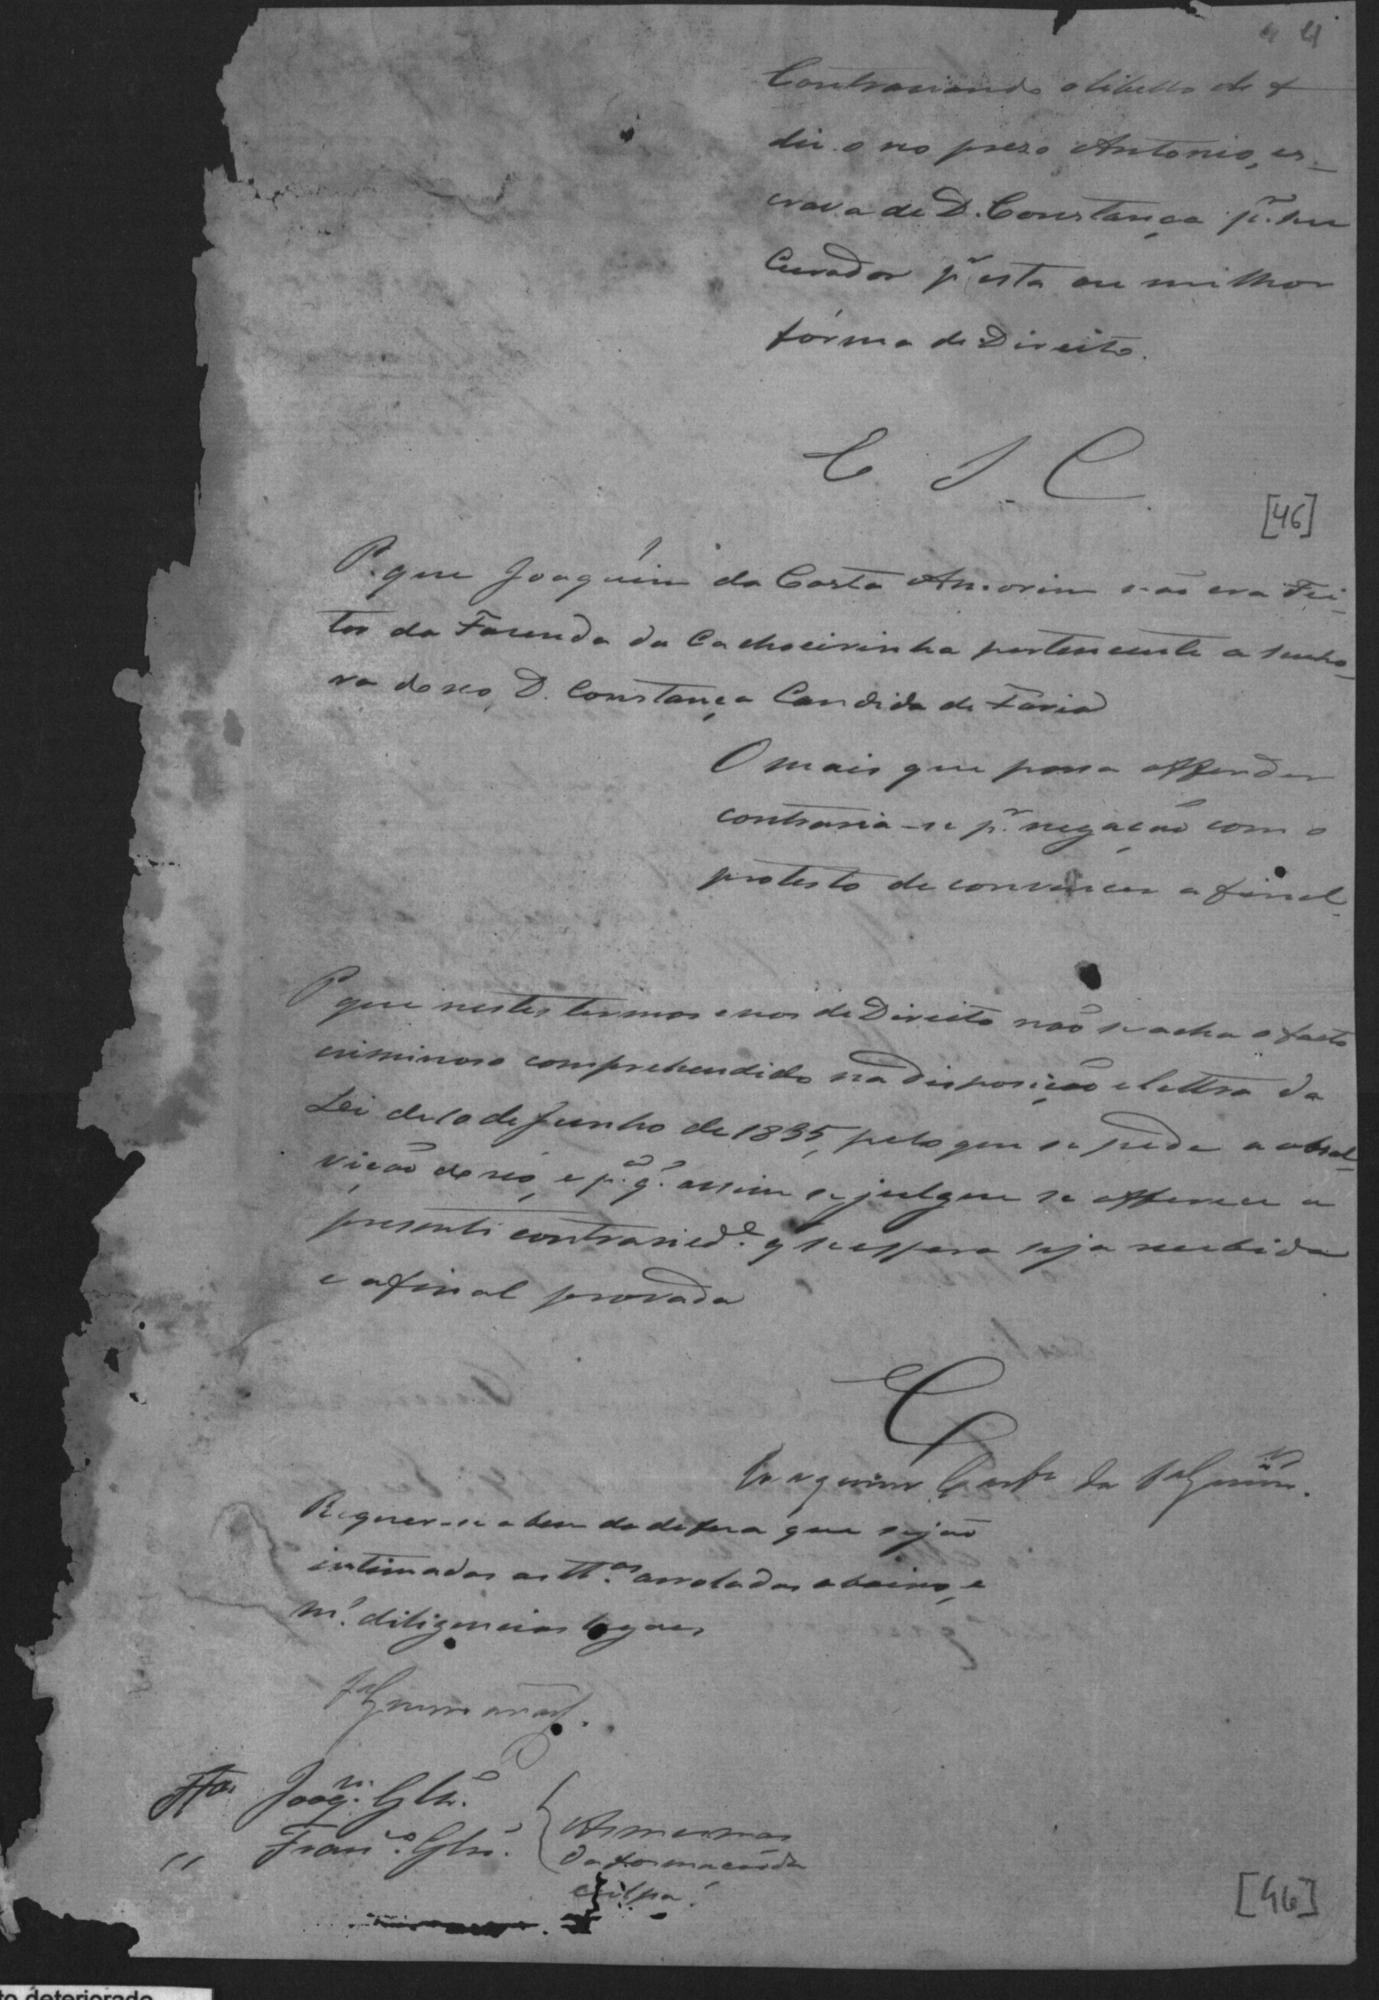 44
Contrariando o libello de f
diz o reo preso Antonio, es-
cravo de D. Constança pr. seu
Curador pr esta ou milhor
fórma de Direito.
E S. C.
[46]
P. que Joaquim da Costa Amorim não era Fei-
tor da Fazenda da Cachoeirinha pertencente a senho-
ra do reo, D. Constança Candida de Faria
O mais que possa offender
contraria-se pr. negação com o
protesto de convencer a final.
P que nestes termos e nos de Direito não se acha o facto
criminoso comprehendido na disposição e lettra da
Lei de 10 de Junho de 1835, pelo que se pede a absol-
vição do reo, e pa. q. assim se julgue se offerece a
presente contraried.e q se espera seja recebida
e afinal provada
Joaquim da
Requer-se a bem da defesa que sejão
intimadas as ttas. arroladas abaixo, e
m. diligencias legaes,
Ttas Joaqm. Glz.
" Franco. Glz.
As mesmas
da formacão da
culpa.
[46]
to deteriorado